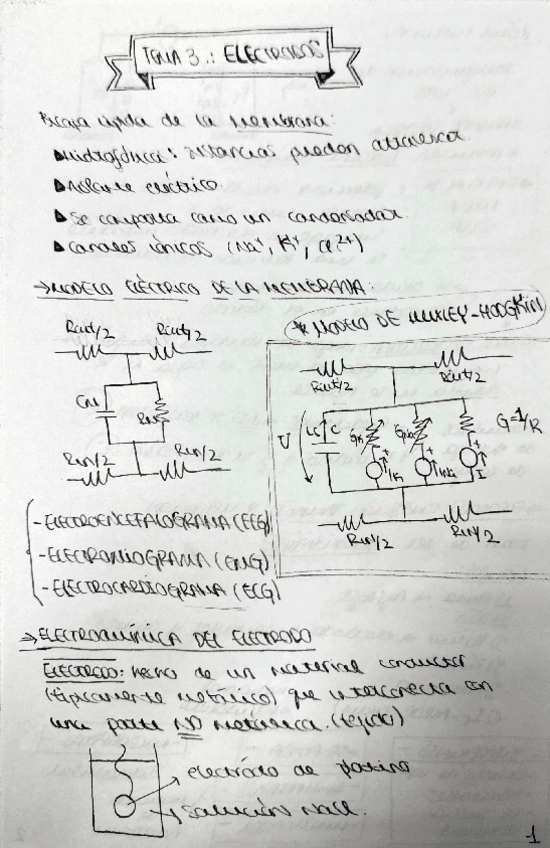 TEMA 3.: ELECTRODOS
Bicapa lipídica de la membrana:
Hidrofóbica: sustancias pueden atravesar.
Aislante eléctrico.
Se comporta como un condensador.
Canales iónicos (Na⁺, K⁺, Cl²⁺)
→ MODELO ELÉCTRICO DE LA MEMBRANA:
* MODELO DE HUXLEY-HODGKIN
Rext/2 Rext/2
Cm Rm
Rin/2 Rin/2
Rext/2 Rext/2
U Ic C GK GNa G=1/R
IK INa I
Rin/2 Rin/2
- ELECTROENCEFALOGRAMA (EEG)
- ELECTROMIOGRAMA (EMG)
- ELECTROCARDIOGRAMA (ECG)
→ ELECTROQUÍMICA DEL ELECTRODO
ELECTRODO: hecho de un material conductor
(típicamente metálico) que interconecta con
una parte NO metálica. (tejido)
electrodo de platino
solución NaCl.
1